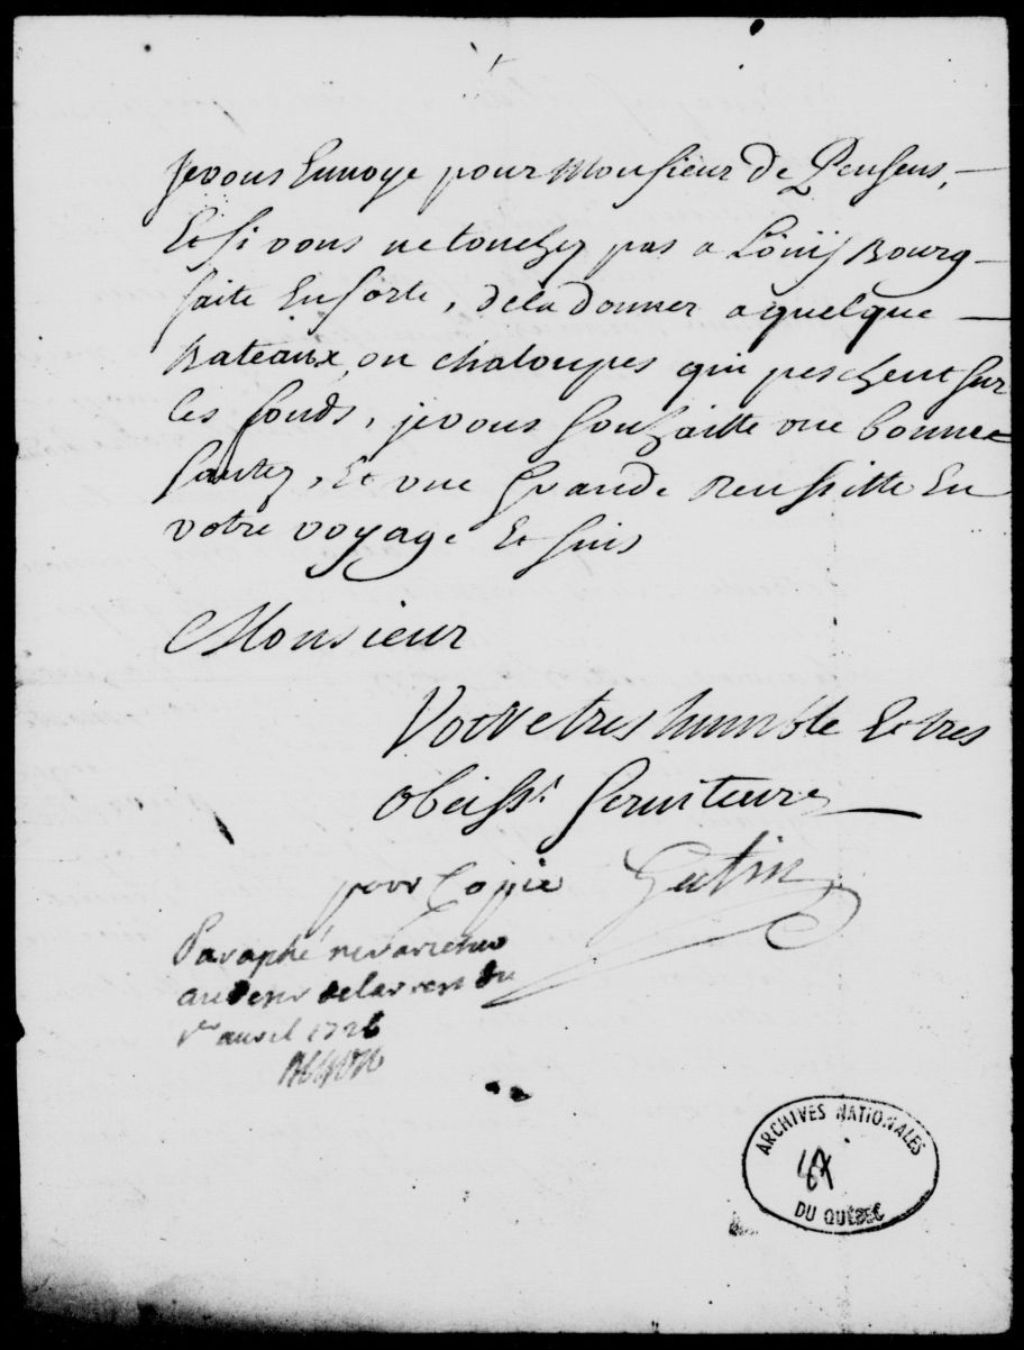 Jevous Envoye pour Monsieur De Pensens,
Et si vous ne touchez pas a Loüis Bourg
faite En sorte, dela donner a quelque
Bateaux, ou chaloupes qui peschent sur
les fonds, je vous souhaitte une bonne
santez, Et une Grande Reussitte En
votre voyage Et suis
Monsieur
Votre tres humble Et tres
obeisst. seruiteur
pour Copie
Paraphé ne varietur
au desir de larrest du
1er auril 1726
ARCHIVES NATIONALES
67
DU QUÉBEC